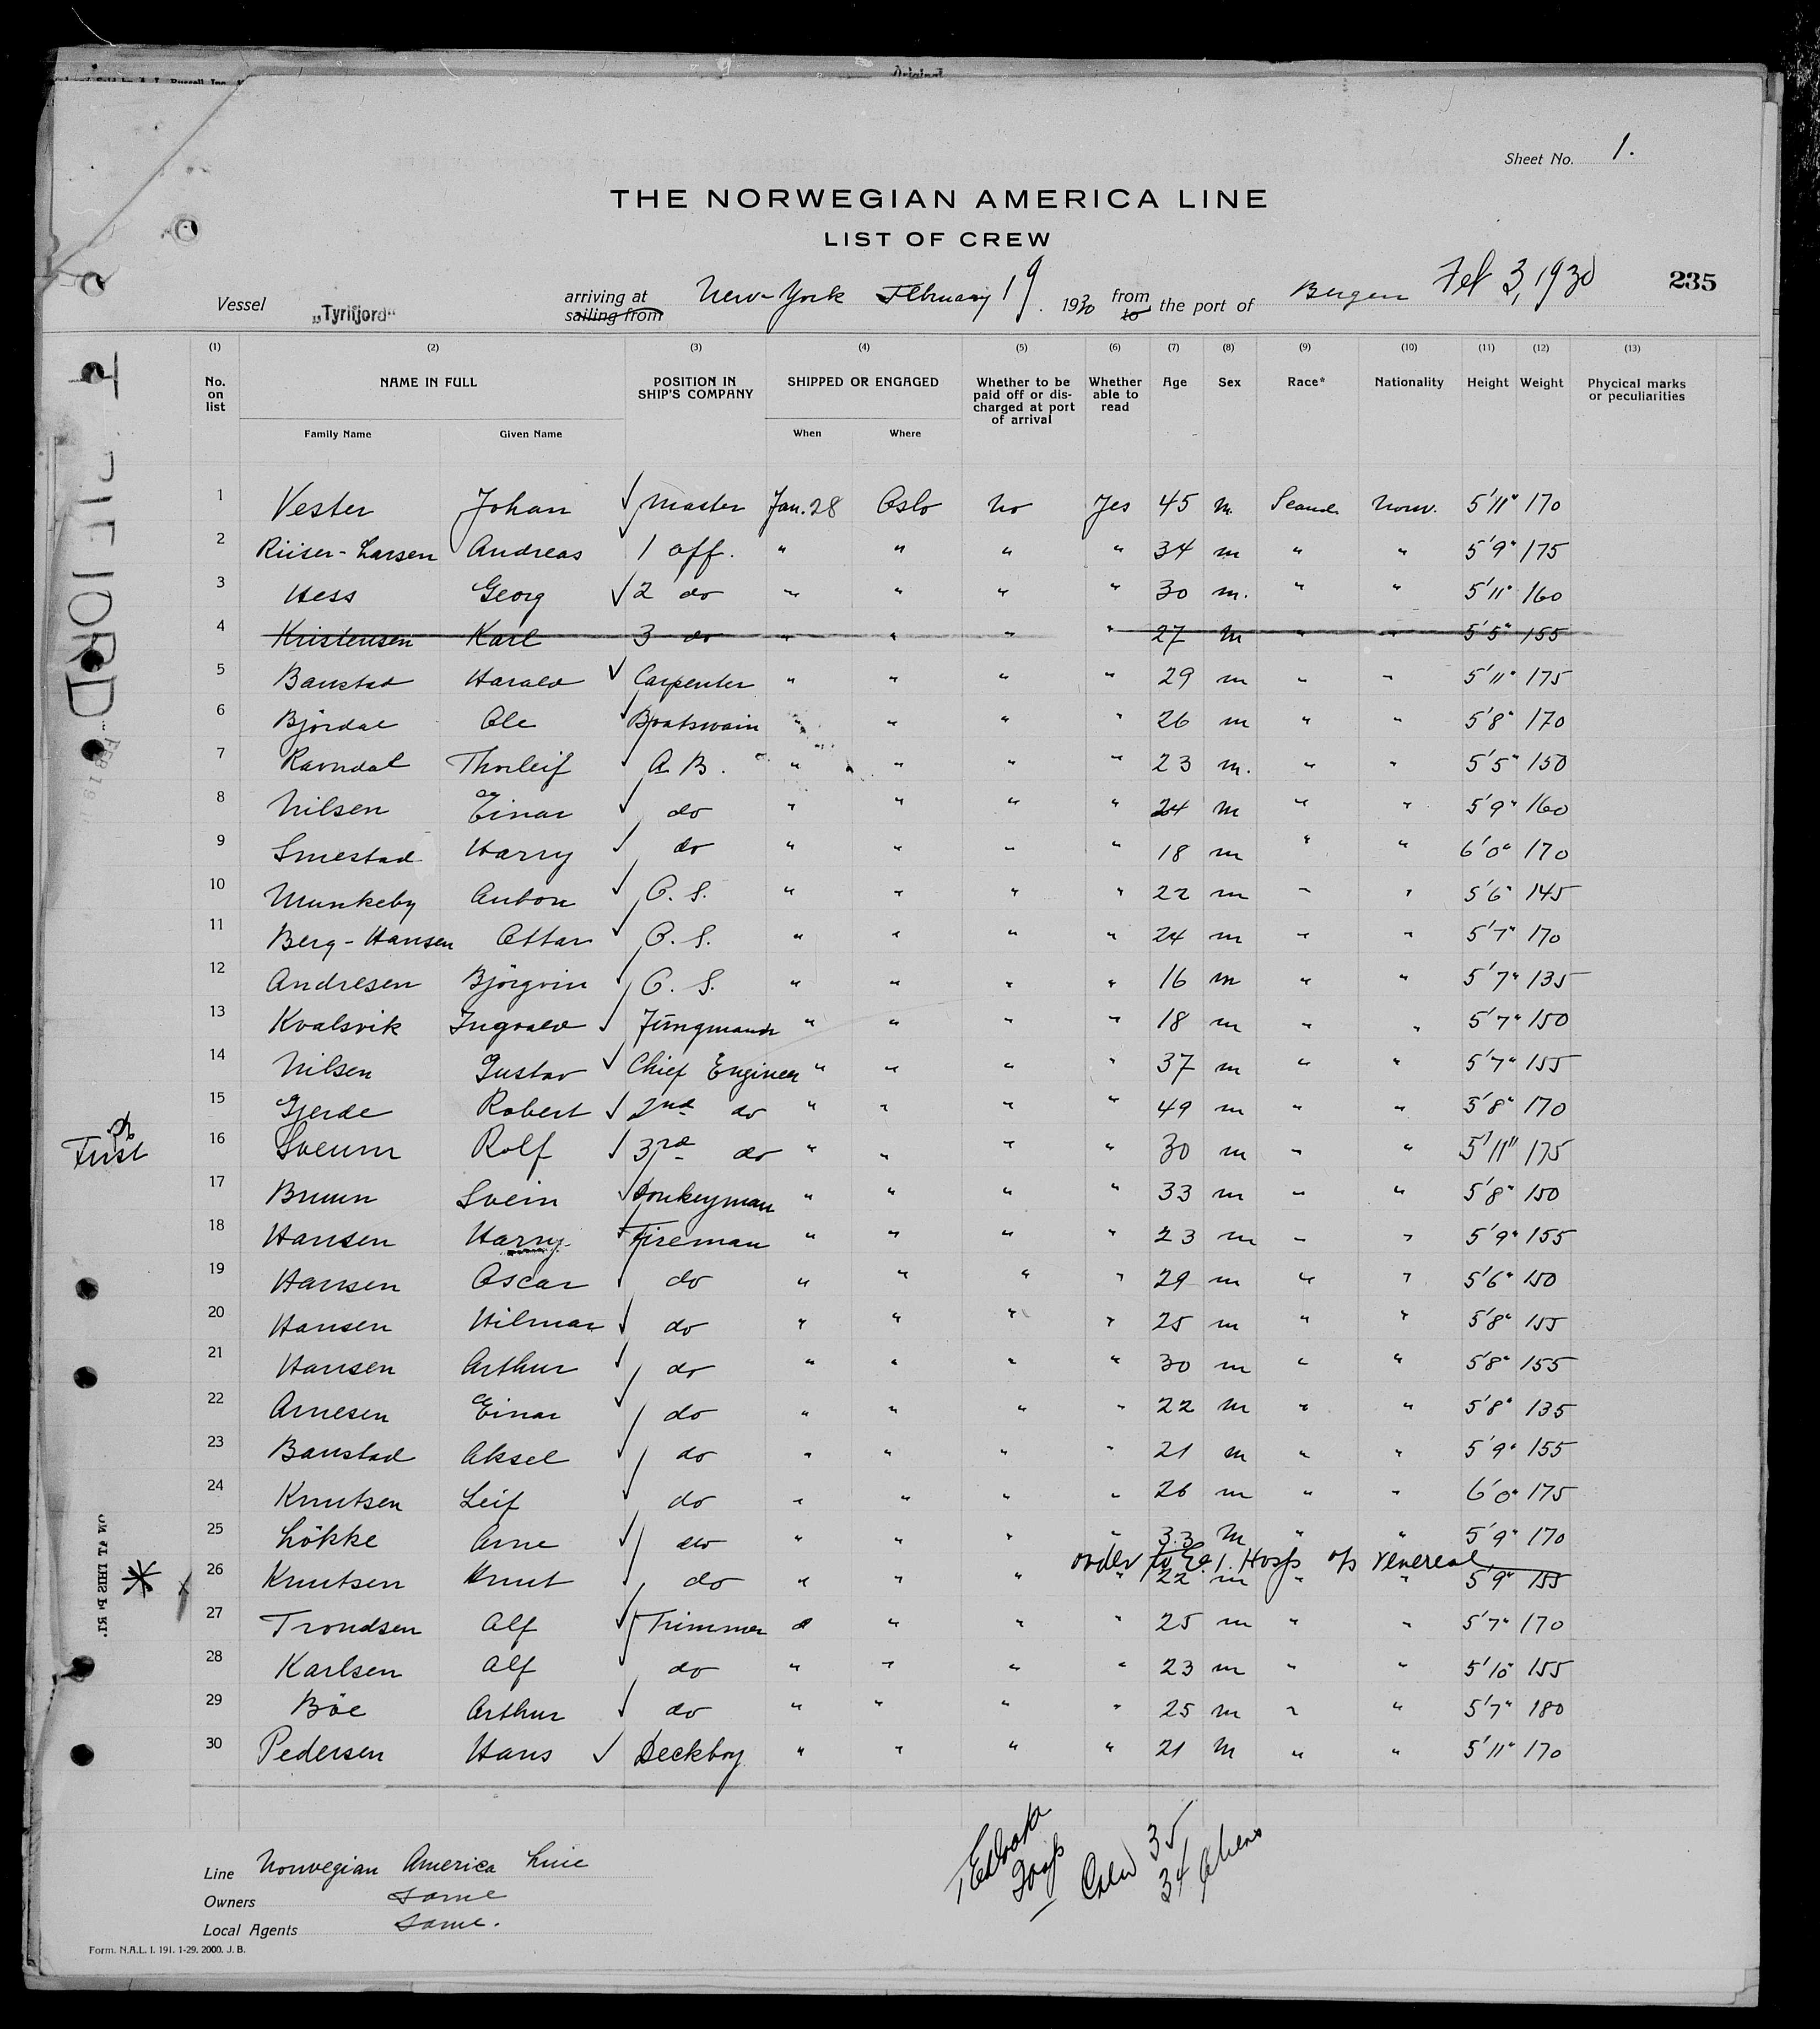 Original
Sheet No. 1.
THE NORWEGIAN AMERICA LINE
LIST OF CREW
Vessel „Tyrifjord“ arriving at sailing from New-York February 19. 1930 from to the port of Bergen Feb 3, 1930 235
(1) (2) (3) (4) (5) (6) (7) (8) (9) (10) (11) (12) (13)
No. on list NAME IN FULL POSITION IN SHIP'S COMPANY SHIPPED OR ENGAGED Whether to be paid off or discharged at port of arrival Whether able to read Age Sex Race* Nationality Height Weight Phycical marks or peculiarities
Family Name Given Name When Where
1 Vester Johan √ Master Jan. 28 Oslo No Yes 45 m. Scand. Norw. 5'11" 170
2 Riiser-Larsen Andreas 1 off. " " " " 34 m " " 5'9" 175
3 Hess Georg √ 2 do " " " " 30 m. " " 5'11" 160
4 Kristensen Karl 3 do " " " " 27 m " " 5'5" 155
5 Banstad Harald √ Carpenter " " " " 29 m " " 5'11" 175
6 Björdal Ole √ Boatswain " " " " 26 m " " 5'8" 170
7 Ravndal Thorleif √ A.B. " " " " 23 m. " " 5'5" 150
8 Nilsen Einar √ do " " " " 24 m " " 5'9" 160
9 Smestad Harry √ do " " " " 18 m " " 6'0" 170
10 Munkeby Anton √ O.S. " " " " 22 m " " 5'6" 145
11 Berg-Hansen Ottar √ O.S. " " " " 24 m " " 5'7" 170
12 Andresen Björgvin √ O.S. " " " " 16 m " " 5'7" 135
13 Kvalsvik Ingvald √ Jungmann " " " " 18 m " " 5'7" 150
14 Nilsen Gustav √ Chief Engineer " " " " 37 m " " 5'7" 155
15 Gjerde Robert √ 2nd do " " " " 49 m " " 5'8" 170
16 Sveum Rolf √ 3rd do " " " " 30 m " " 5'11" 175
17 Bruun Svein √ Donkeyman " " " " 33 m " " 5'8" 150
18 Hansen Harry √ Fireman " " " " 23 m " " 5'9" 155
19 Hansen Oscar √ do " " " " 29 m " " 5'6" 150
20 Hansen Hilmar √ do " " " " 25 m " " 5'8" 155
21 Hansen Arthur √ do " " " " 30 m " " 5'8" 155
22 Arnesen Einar √ do " " " " 22 m " " 5'8" 135
23 Banstad Aksel √ do " " " " 21 m " " 5'9" 155
24 Knutsen Leif √ do " " " " 26 m " " 6'0" 175
25 Lökke Arne √ do " " " " 33 m " " 5'9" 170
order to Hosp venereal
26 Knutsen Knut √ do " " " " 22 m " " 5'9" 155
27 Trondsen Alf √ Trimmer " " " " 25 m " " 5'7" 170
28 Karlsen Alf √ do " " " " 23 m " " 5'10" 155
29 Böe Arthur √ do " " " " 25 m " " 5'7" 180
30 Pedersen Hans √ Deckboy " " " " 21 m " " 5'11" 170
Crew 35
34 aliens
Line Norwegian America Line
Owners same
Local Agents same.
Form. N.A.L. I. 191. 1-29. 2000. J. B.